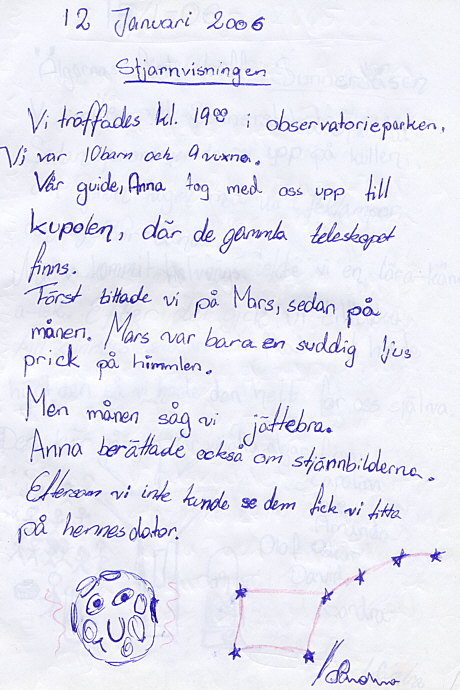 12 Januari 2006
Stjärnvisningen
Vi träffades kl. 19⁰⁰ i observatorieparken.
Vi var 10 barn och 9 vuxna.
Vår guide, Anna tog med oss upp till
kupolen, där de gamla teleskopet
finns.
Först tittade vi på Mars, sedan på
månen. Mars var bara en suddig ljus
prick på himmlen.
Men månen såg vi jättebra.
Anna berättade också om stjärnbilderna.
Eftersom vi inte kunde se dem fick vi titta
på hennes dator.